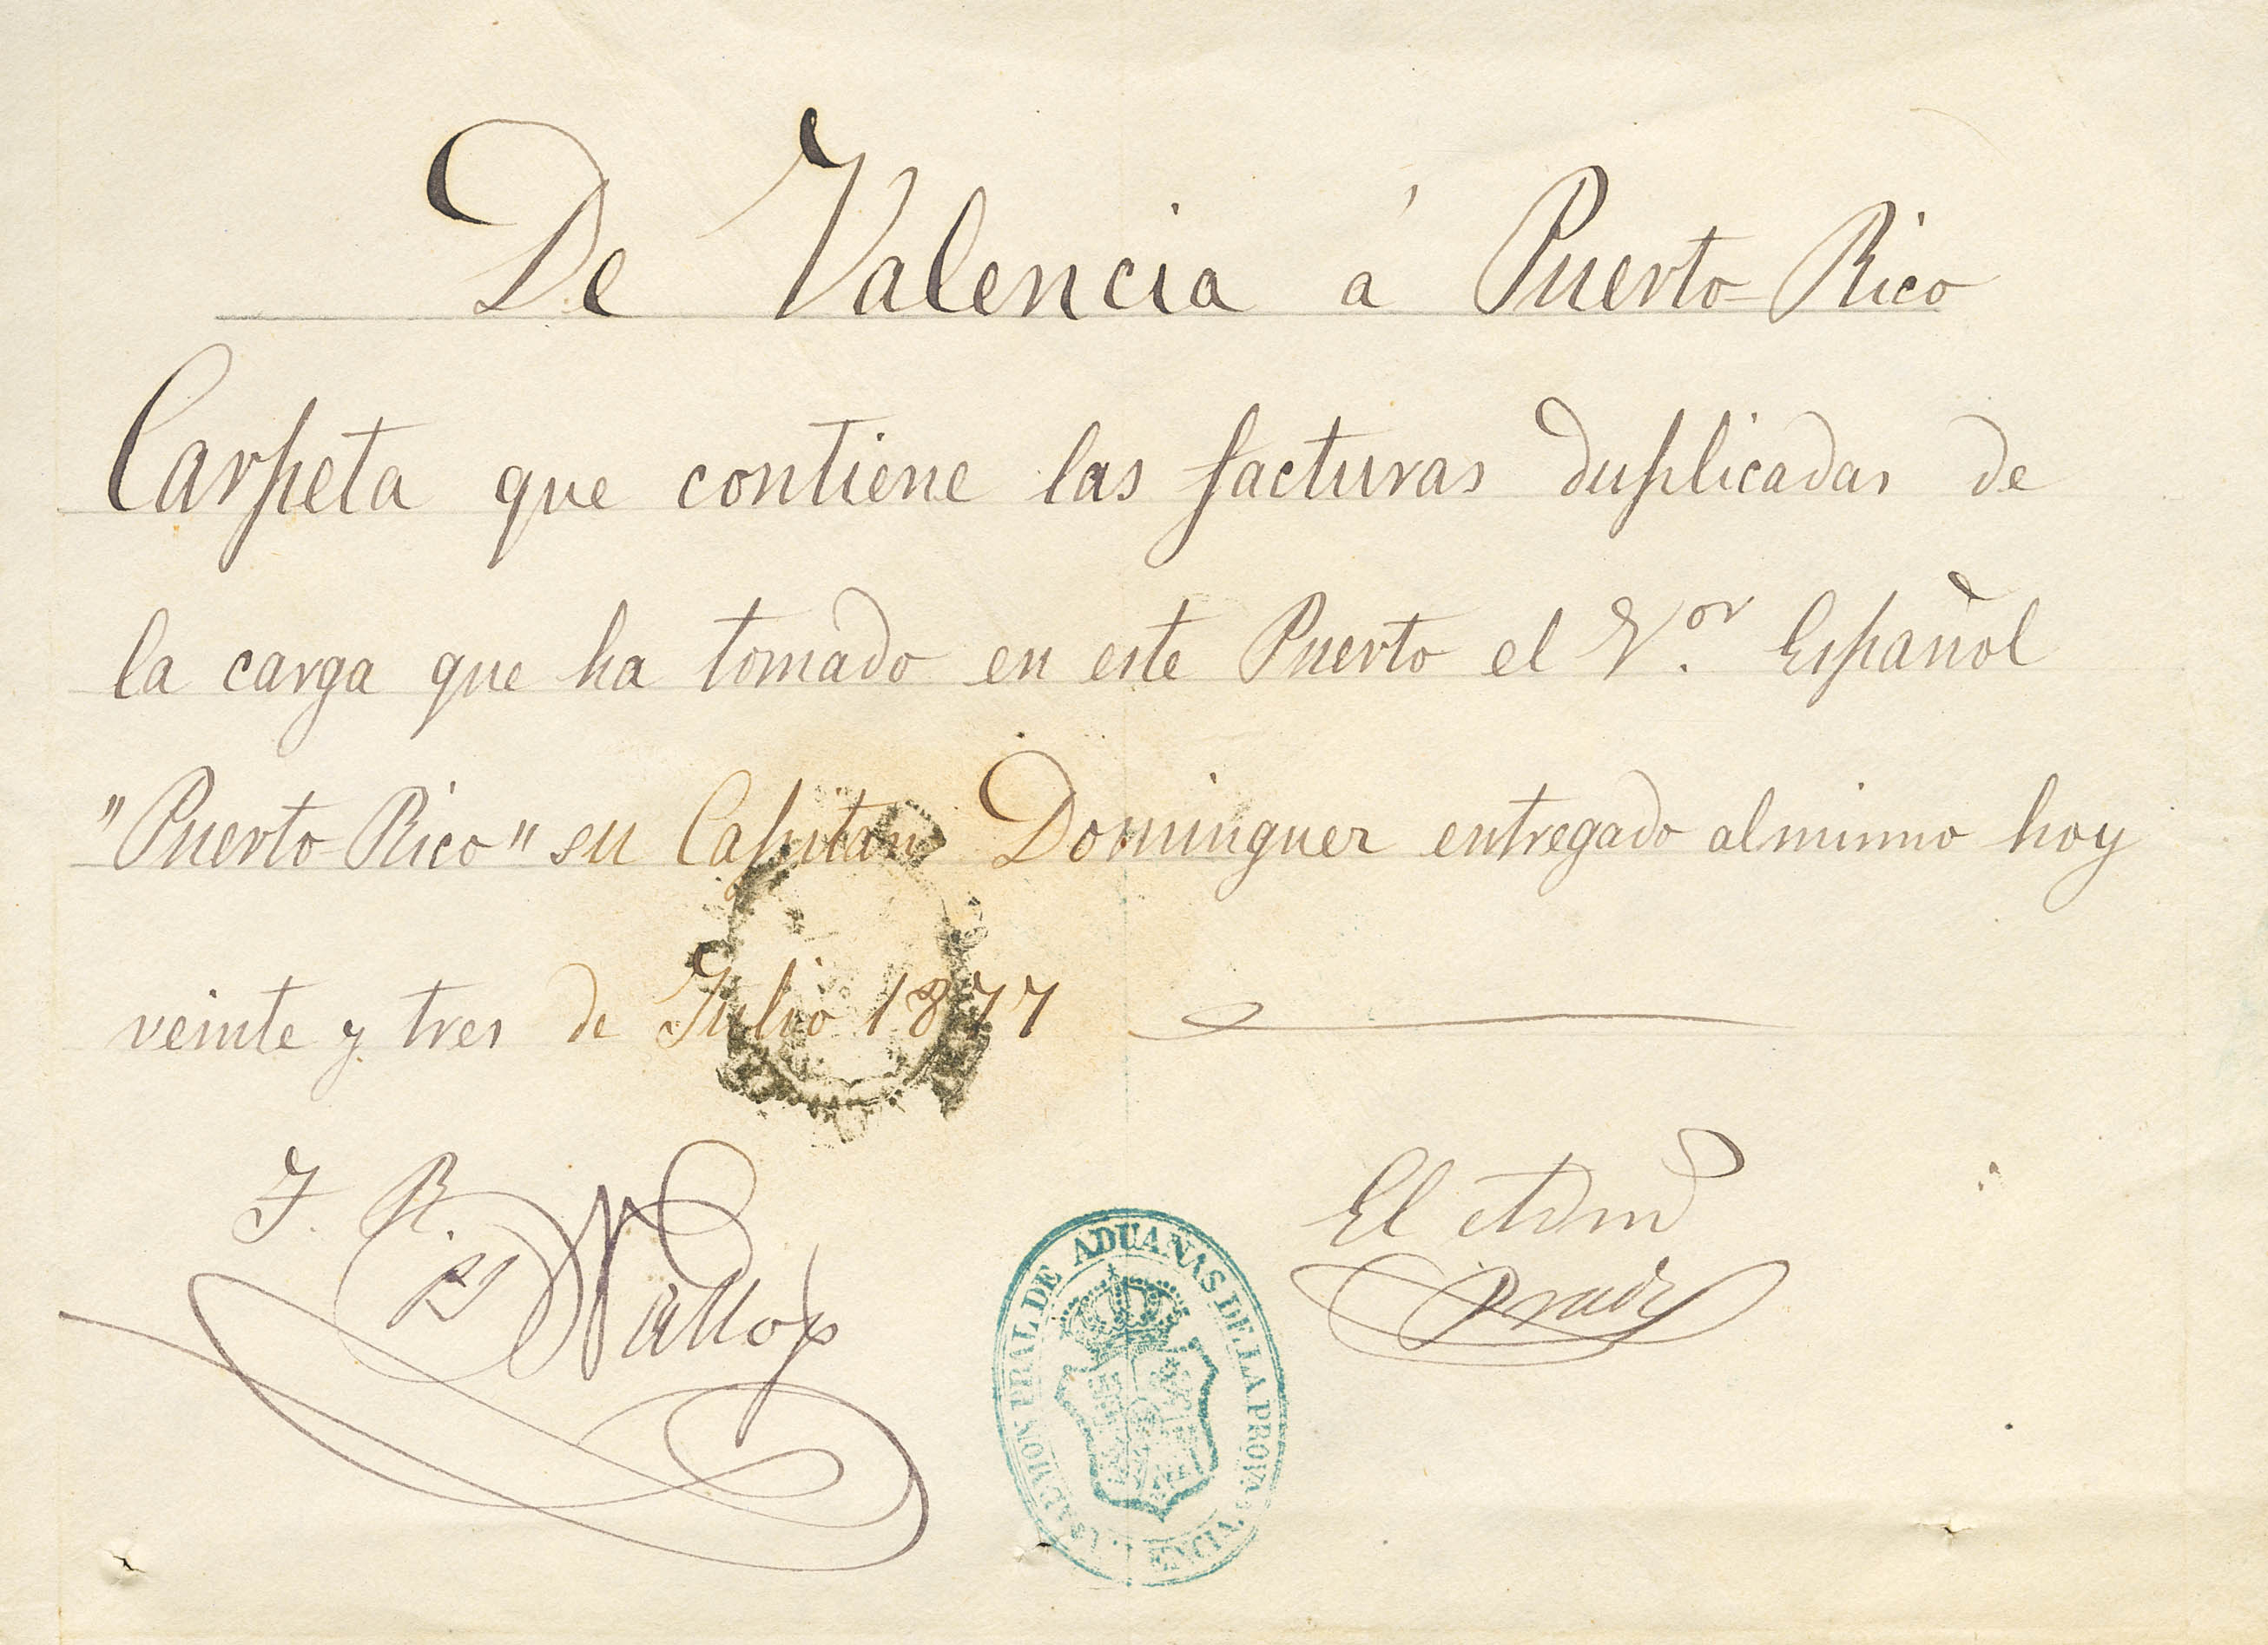 De Valencia á Puerto-Rico
Carpeta que contiene las facturas duplicadas de
la carga que ha tomado en este Puerto el Vor. Español
"Puerto-Rico" su Capitan Dominguez entregado al mismo hoy
veinte y tres de Julio 1877
El Adm
DE ADUANAS DE LA PROVA.